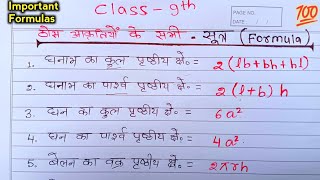 Important
Formulas
Class - 9th
PAGE NO.:
DATE: / /
100
ठोस आकृतियों के सभी - सूत्र (Formula)
1. घनाभ का कुल पृष्ठीय क्षे० = 2(lb+bh+hl)
2. घनाभ का पार्श्व पृष्ठीय क्षे० = 2(l+b)h
3. घन का कुल पृष्ठीय क्षे० = 6a²
4. घन का पार्श्व पृष्ठीय क्षे० = 4a²
5. बेलन का वक्र पृष्ठीय क्षे० = 2πrh